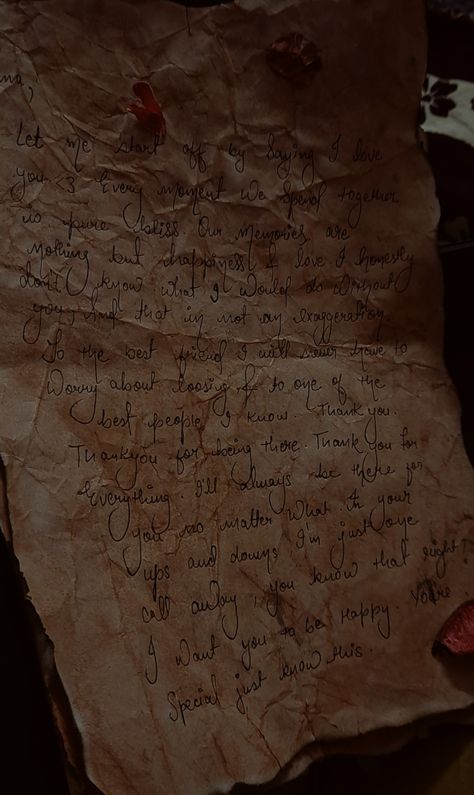 Let me start off by saying I love
you <3 Every moment we spend together
is pure bliss. Our memories are
nothing but happiness & love I honestly
don't know what I would do without
you, And that is not an exaggeration.
To the best friend I will never have to
Worry about loosing & to one of the
best people I know. Thank you.
Thankyou for being there. Thank you for
Everything. I'll always be there for
you no matter what. In your
ups and downs. I'm just one
call away, you know that right?
I want you to be happy. You're
Special just know this.